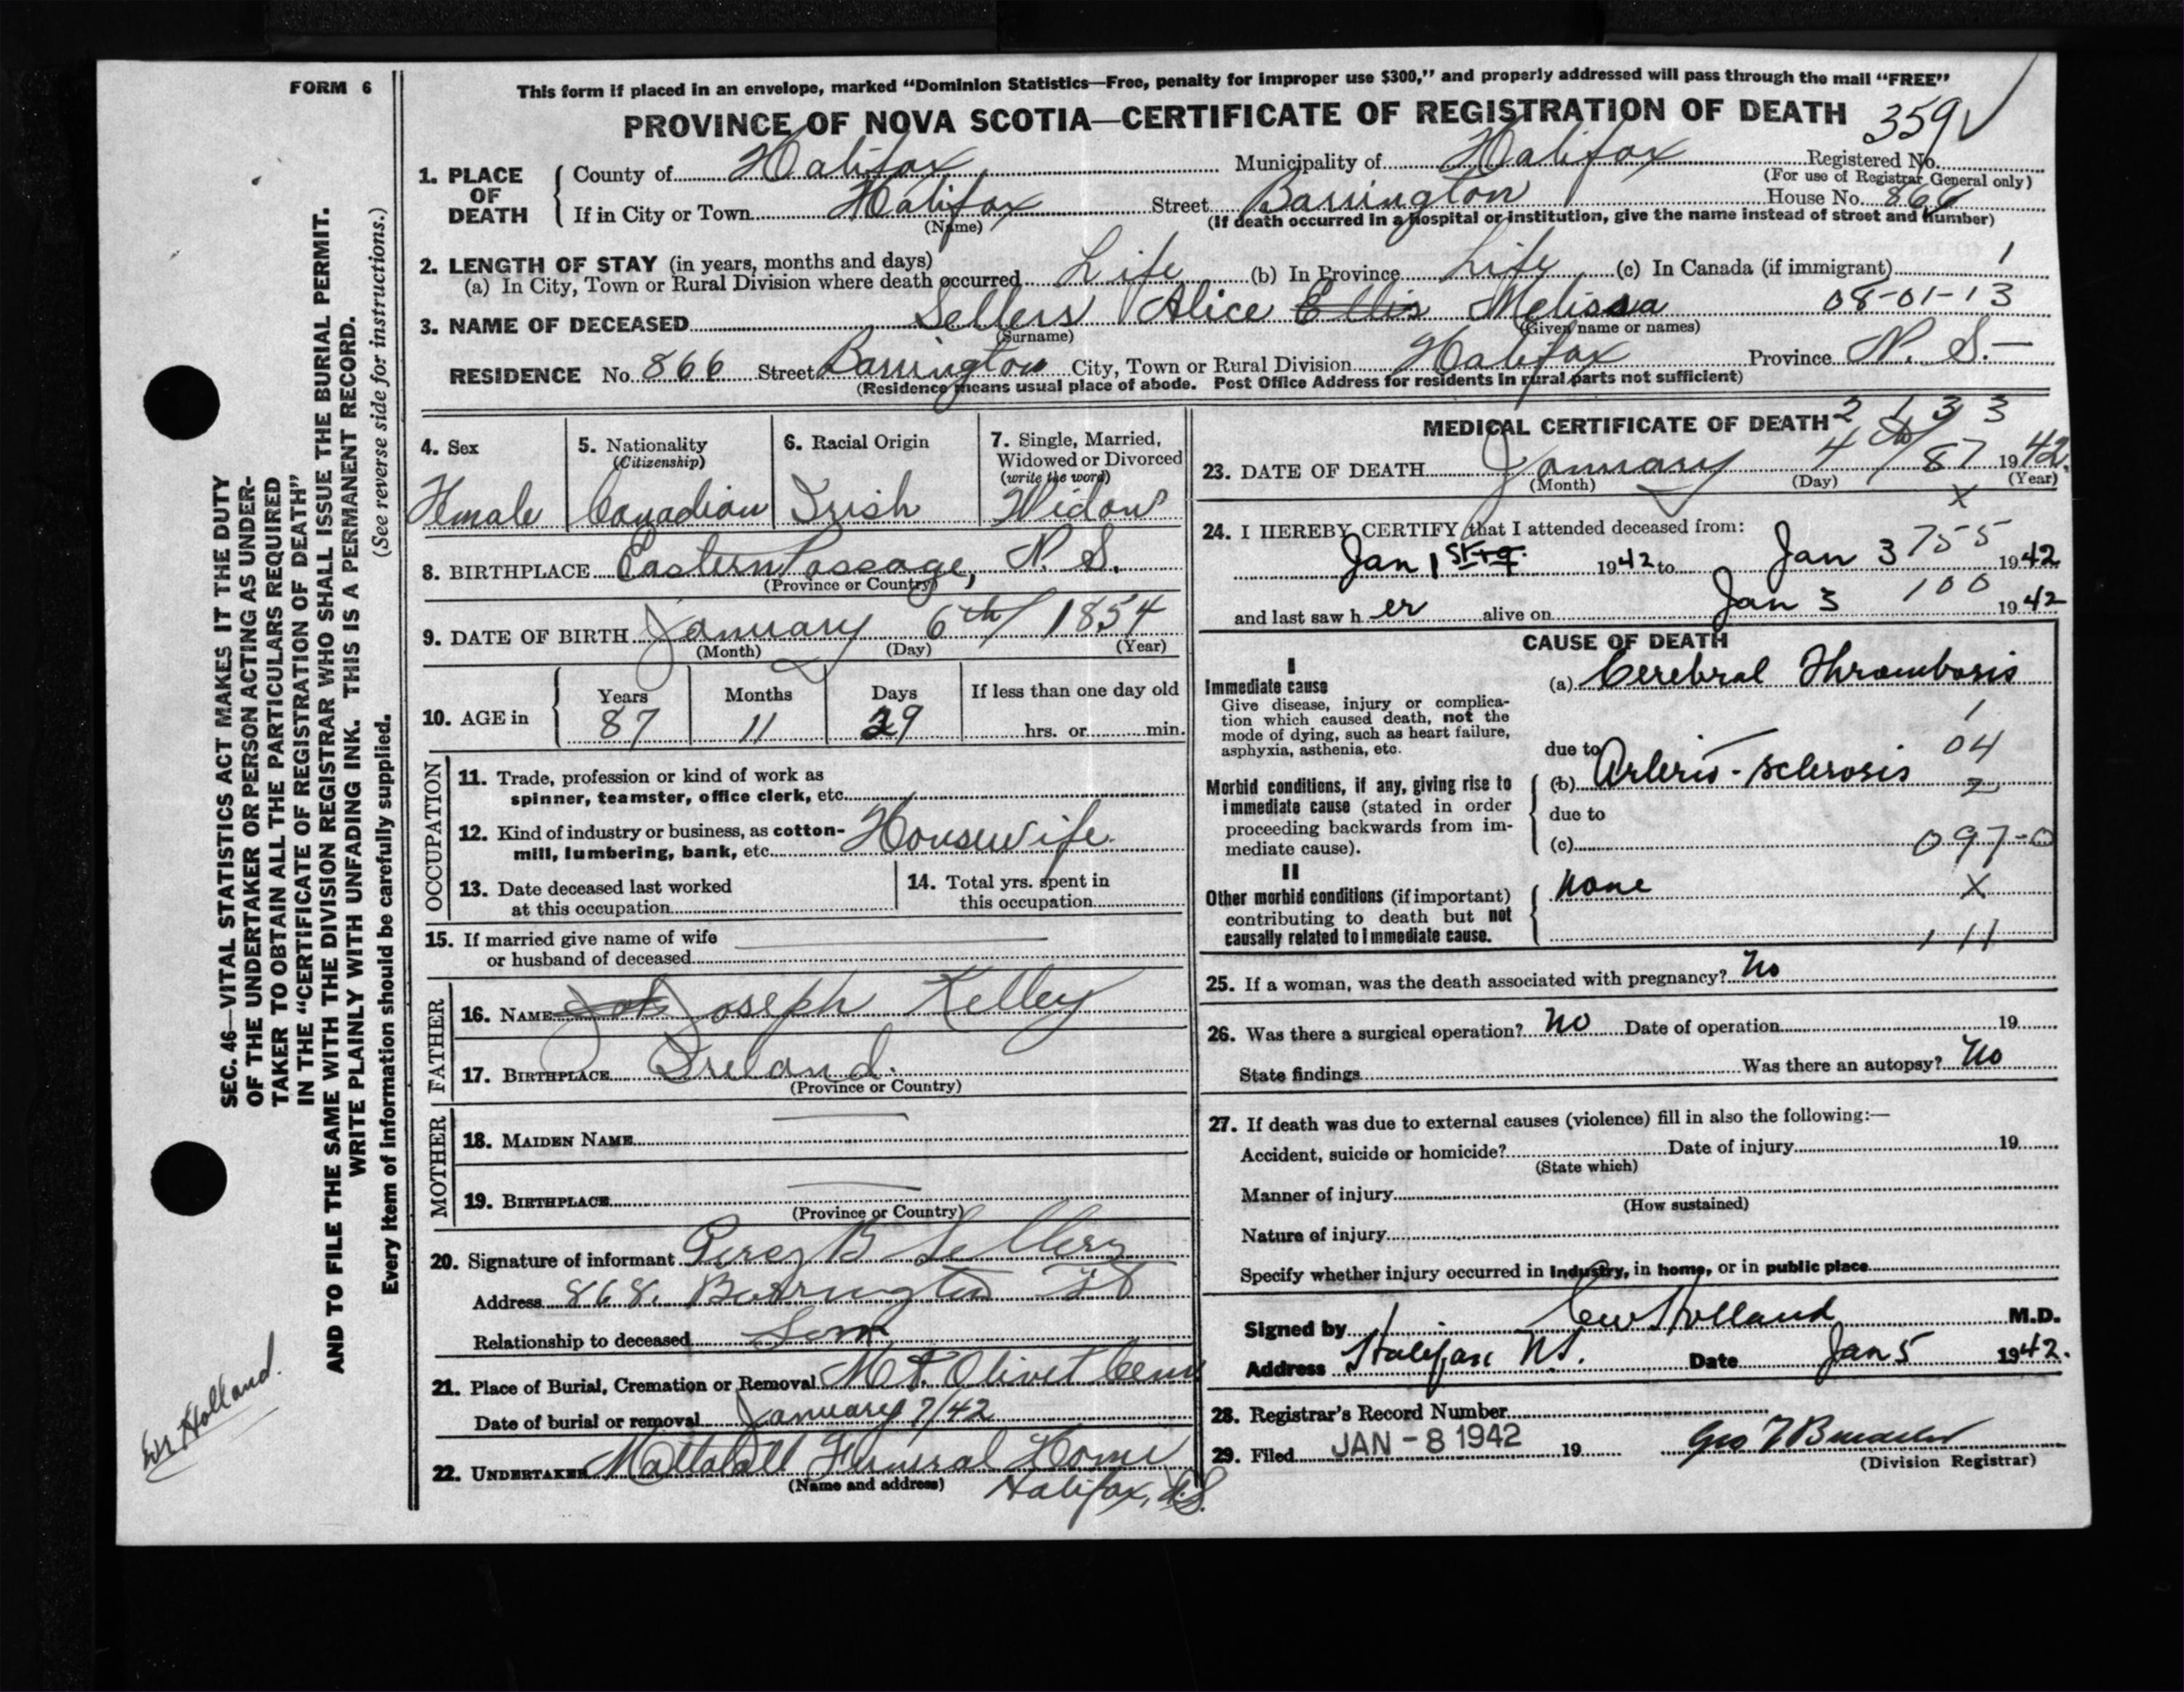 FORM 6
This form if placed in an envelope, marked "Dominion Statistics—Free, penalty for improper use $300," and properly addressed will pass through the mail "FREE"
PROVINCE OF NOVA SCOTIA—CERTIFICATE OF REGISTRATION OF DEATH
359
1. PLACE OF DEATH
County of Halifax Municipality of Halifax Registered No.
(For use of Registrar General only)
If in City or Town Halifax Street Barrington House No. 866
(Name) (If death occurred in a hospital or institution, give the name instead of street and number)
2. LENGTH OF STAY (in years, months and days)
(a) In City, Town or Rural Division where death occurred Life (b) In Province Life (c) In Canada (if immigrant) 1
3. NAME OF DECEASED Sellers Alice Ellis Melissa 08-01-13
(Surname) (Given name or names)
RESIDENCE No. 866 Street Barrington City, Town or Rural Division Halifax Province N. S.
(Residence means usual place of abode. Post Office Address for residents in rural parts not sufficient)
4. Sex
Female
5. Nationality
(Citizenship)
Canadian
6. Racial Origin
Irish
7. Single, Married,
Widowed or Divorced
(write the word)
Widow
8. BIRTHPLACE Eastern Passage, N. S.
(Province or Country)
9. DATE OF BIRTH January 6th 1854
(Month) (Day) (Year)
10. AGE in
Years Months Days If less than one day old
87 11 29 hrs. or min.
OCCUPATION
11. Trade, profession or kind of work as
spinner, teamster, office clerk, etc.
12. Kind of industry or business, as cotton-
mill, lumbering, bank, etc. Housewife
13. Date deceased last worked
at this occupation
14. Total yrs. spent in
this occupation
15. If married give name of wife
or husband of deceased
FATHER
16. NAME Joseph Kelley
17. BIRTHPLACE Ireland.
(Province or Country)
MOTHER
18. MAIDEN NAME
19. BIRTHPLACE
(Province or Country)
20. Signature of informant Percy B Sellers
Address 868 Barrington St
Relationship to deceased Son
21. Place of Burial, Cremation or Removal Mt. Olivet Cem
Date of burial or removal January 7/42
22. UNDERTAKER Mattatall Funeral Home
(Name and address) Halifax, N.S.
MEDICAL CERTIFICATE OF DEATH
2 1 3 3
23. DATE OF DEATH January 4th 87 1942.
(Month) (Day) (Year)
X
24. I HEREBY CERTIFY that I attended deceased from:
Jan 1st 1942 to Jan 3 755 1942
and last saw her alive on Jan 3 100 1942
CAUSE OF DEATH
I
Immediate cause
Give disease, injury or complica-
tion which caused death, not the
mode of dying, such as heart failure,
asphyxia, asthenia, etc.
(a) Cerebral Thrombosis
1
due to 04
Morbid conditions, if any, giving rise to
immediate cause (stated in order
proceeding backwards from im-
mediate cause).
(b) Arterio-sclerosis 2
due to
(c) 097-0
II
Other morbid conditions (if important)
contributing to death but not
causally related to immediate cause.
None X
1 11
25. If a woman, was the death associated with pregnancy? No
26. Was there a surgical operation? No Date of operation 19
State findings Was there an autopsy? No
27. If death was due to external causes (violence) fill in also the following:—
Accident, suicide or homicide? Date of injury 19
(State which)
Manner of injury
(How sustained)
Nature of injury
Specify whether injury occurred in Industry, in home, or in public place
Signed by CW Holland M.D.
Address Halifax N.S. Date Jan 5 1942.
28. Registrar's Record Number
29. Filed JAN -8 1942 19
(Division Registrar)
SEC. 46—VITAL STATISTICS ACT MAKES IT THE DUTY
OF THE UNDERTAKER OR PERSON ACTING AS UNDER-
TAKER TO OBTAIN ALL THE PARTICULARS REQUIRED
IN THE "CERTIFICATE OF REGISTRATION OF DEATH"
AND TO FILE THE SAME WITH THE DIVISION REGISTRAR WHO SHALL ISSUE THE BURIAL PERMIT.
WRITE PLAINLY WITH UNFADING INK. THIS IS A PERMANENT RECORD.
Every item of information should be carefully supplied. (See reverse side for instructions.)
Holland.